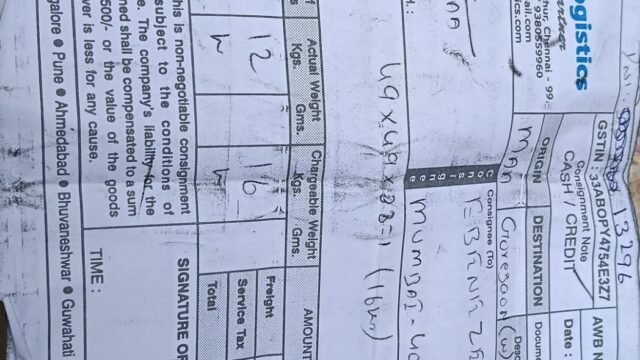 13296
Logistics
Partner
GSTIN : 33ABOPY4754E3Z7
AWB N
thur, Chennai - 99.
9380559960
Consignment Note
CASH / CREDIT
Date :
ORIGIN
DESTINATION
Docum
MAA
Goregaon (w)
Consignee (To)
MUMBAI - 40
49 x 49 x 33 = 1 (16kg)
Actual Weight
Chargeable Weight
AMOUNT
Kgs.
Gms.
Kgs.
Gms.
12
16
Freight
Service Tax
Total
This is non-negotiable consignment
subject to the conditions of
The company's liability for the
ned shall be compensated to a sum
500/- or the value of the goods
ver is less for any cause.
SIGNATURE OF
TIME :
galore ● Pune ● Ahmedabad ● Bhuvaneshwar ● Guwahati